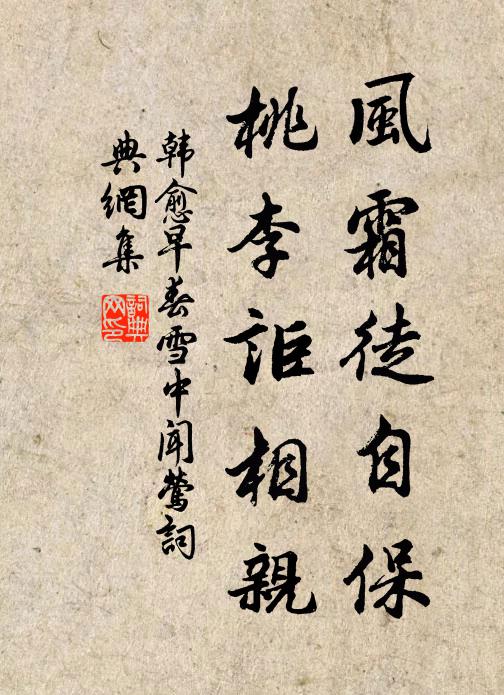 風霜徒自保
桃李詎相親
韩愈早春雪中闻鶯詞
典網集
詞典
网印